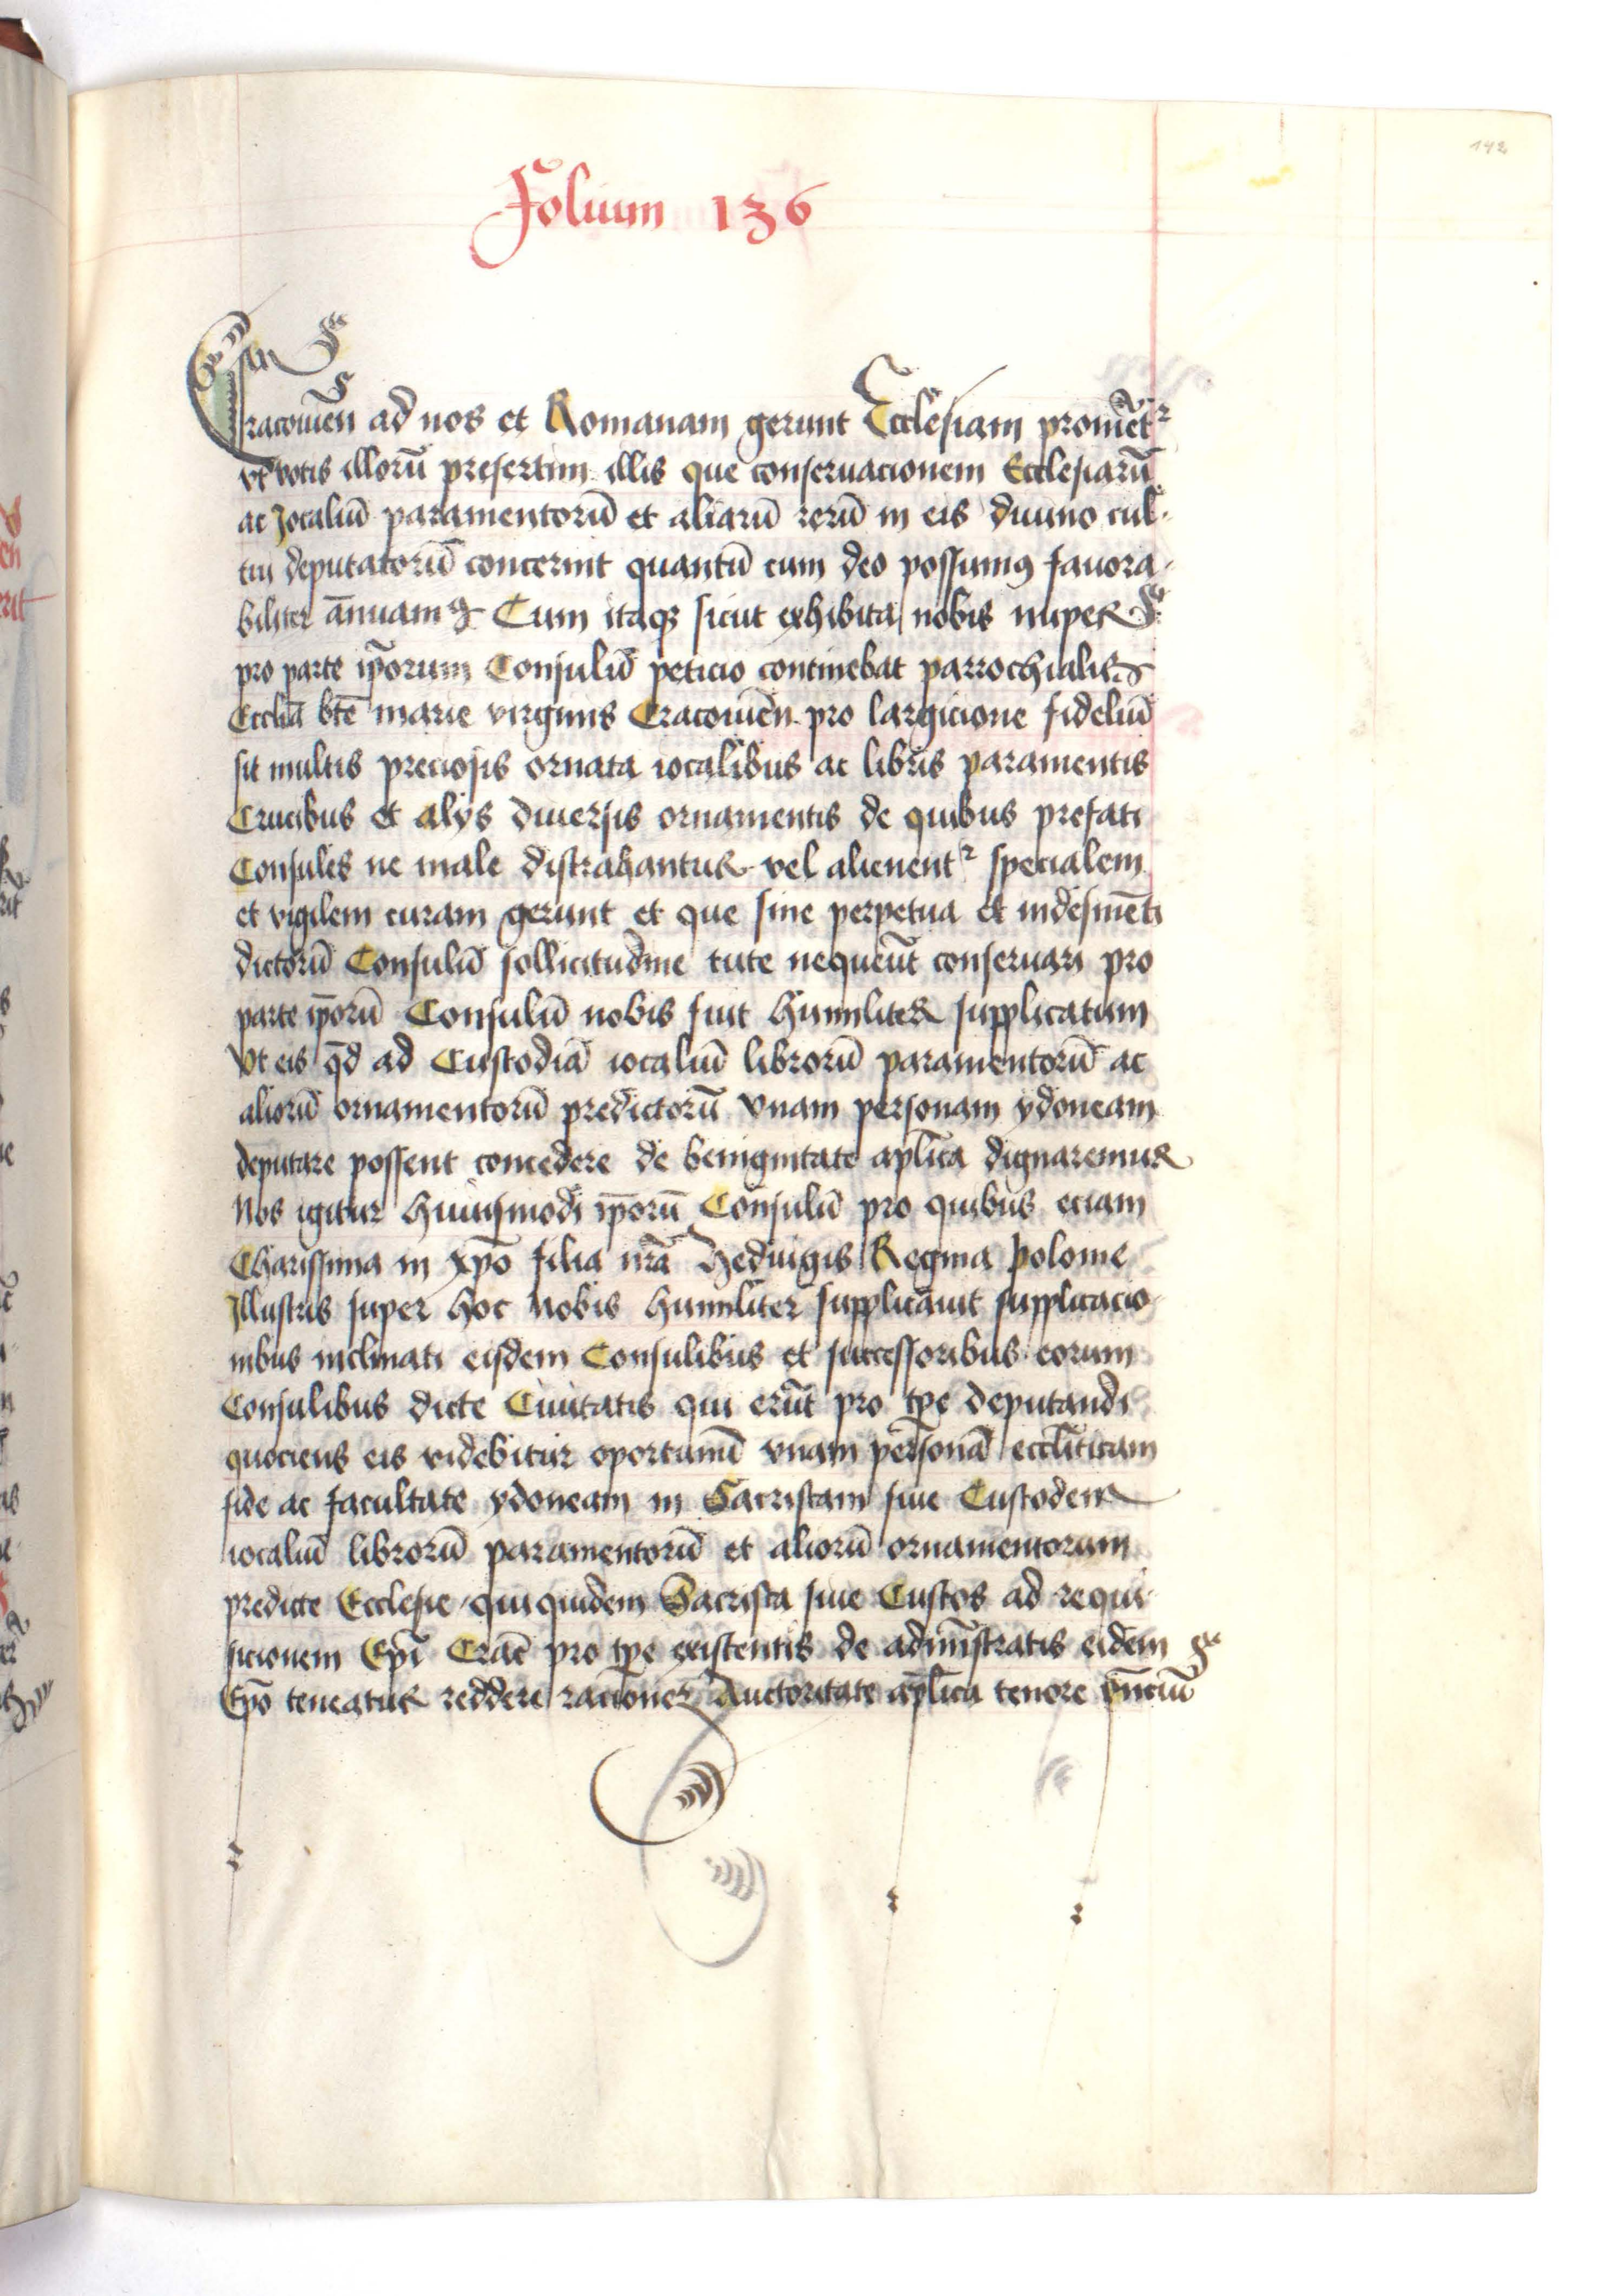 142
Folium 136
Cracouien̄ ad nos et Romanam gerunt Ecclesiam promēt²
vt votis illorū presertim illis que conseruacionem Ecclesiarū
ac Jocaliū paramentorū et aliarū rerū in eis diuino cul-
tui deputatorū concernit quantū cum deo possumꝰ fauora-
biliter ānuamꝰ Cum itaqꝫ sicut exhibita nobis nuper
pro parte ip̄orum Consulū peticio continebat parrochialis
Eccliā btē marie virginis Cracouien̄ pro largicione fideliū
sit multis preciosis ornata iocalibus ac libris paramentis
Crucibus et alys diuersis ornamentis de quibus prefati
Consules ne male distrahantur vel alienent² specialem
et vigilem curam gerunt et que sine perpetua et indesinēti
dictorū Consulū sollicitudine tute nequeūt conseruari pro
parte ip̄orū Consulū nobis fuit humiliter supplicatum
Vt eis q̄d ad Custodiā iocaliū librorū paramentorū ac
aliorū ornamentorū predictorū vnam personam ydoneam
deputare possent concedere de benignitate aplīca dignaremur
Nos igitur huiusmodi ip̄orū Consulū pro quibus eciam
Charissima in xp̄o filia nr̄a Heduigis Regina polonie
Illustris super hoc nobis humiliter supplicauit supplicacio
nibus inclinati eisdem Consulibus et successoribus eorum
Consulibus dicte Ciuitatis qui erūt pro tp̄e deputandi
quociens eis videbitur oportunū vnam personā eccl̄iticam
fide ac facultate ydoneam in Sacristam siue Custodem
iocaliū librorū paramentorū et aliorū ornamentorum
predicte Ecclesie qui quidem Sacrista siue Custos ad requi-
sicionem Ep̄i Crac̄ pro tp̄e existentis de adminīstratis eidem
Ep̄o teneatur reddere racionem Auctoritate ap̄lica tenore p̄nciū